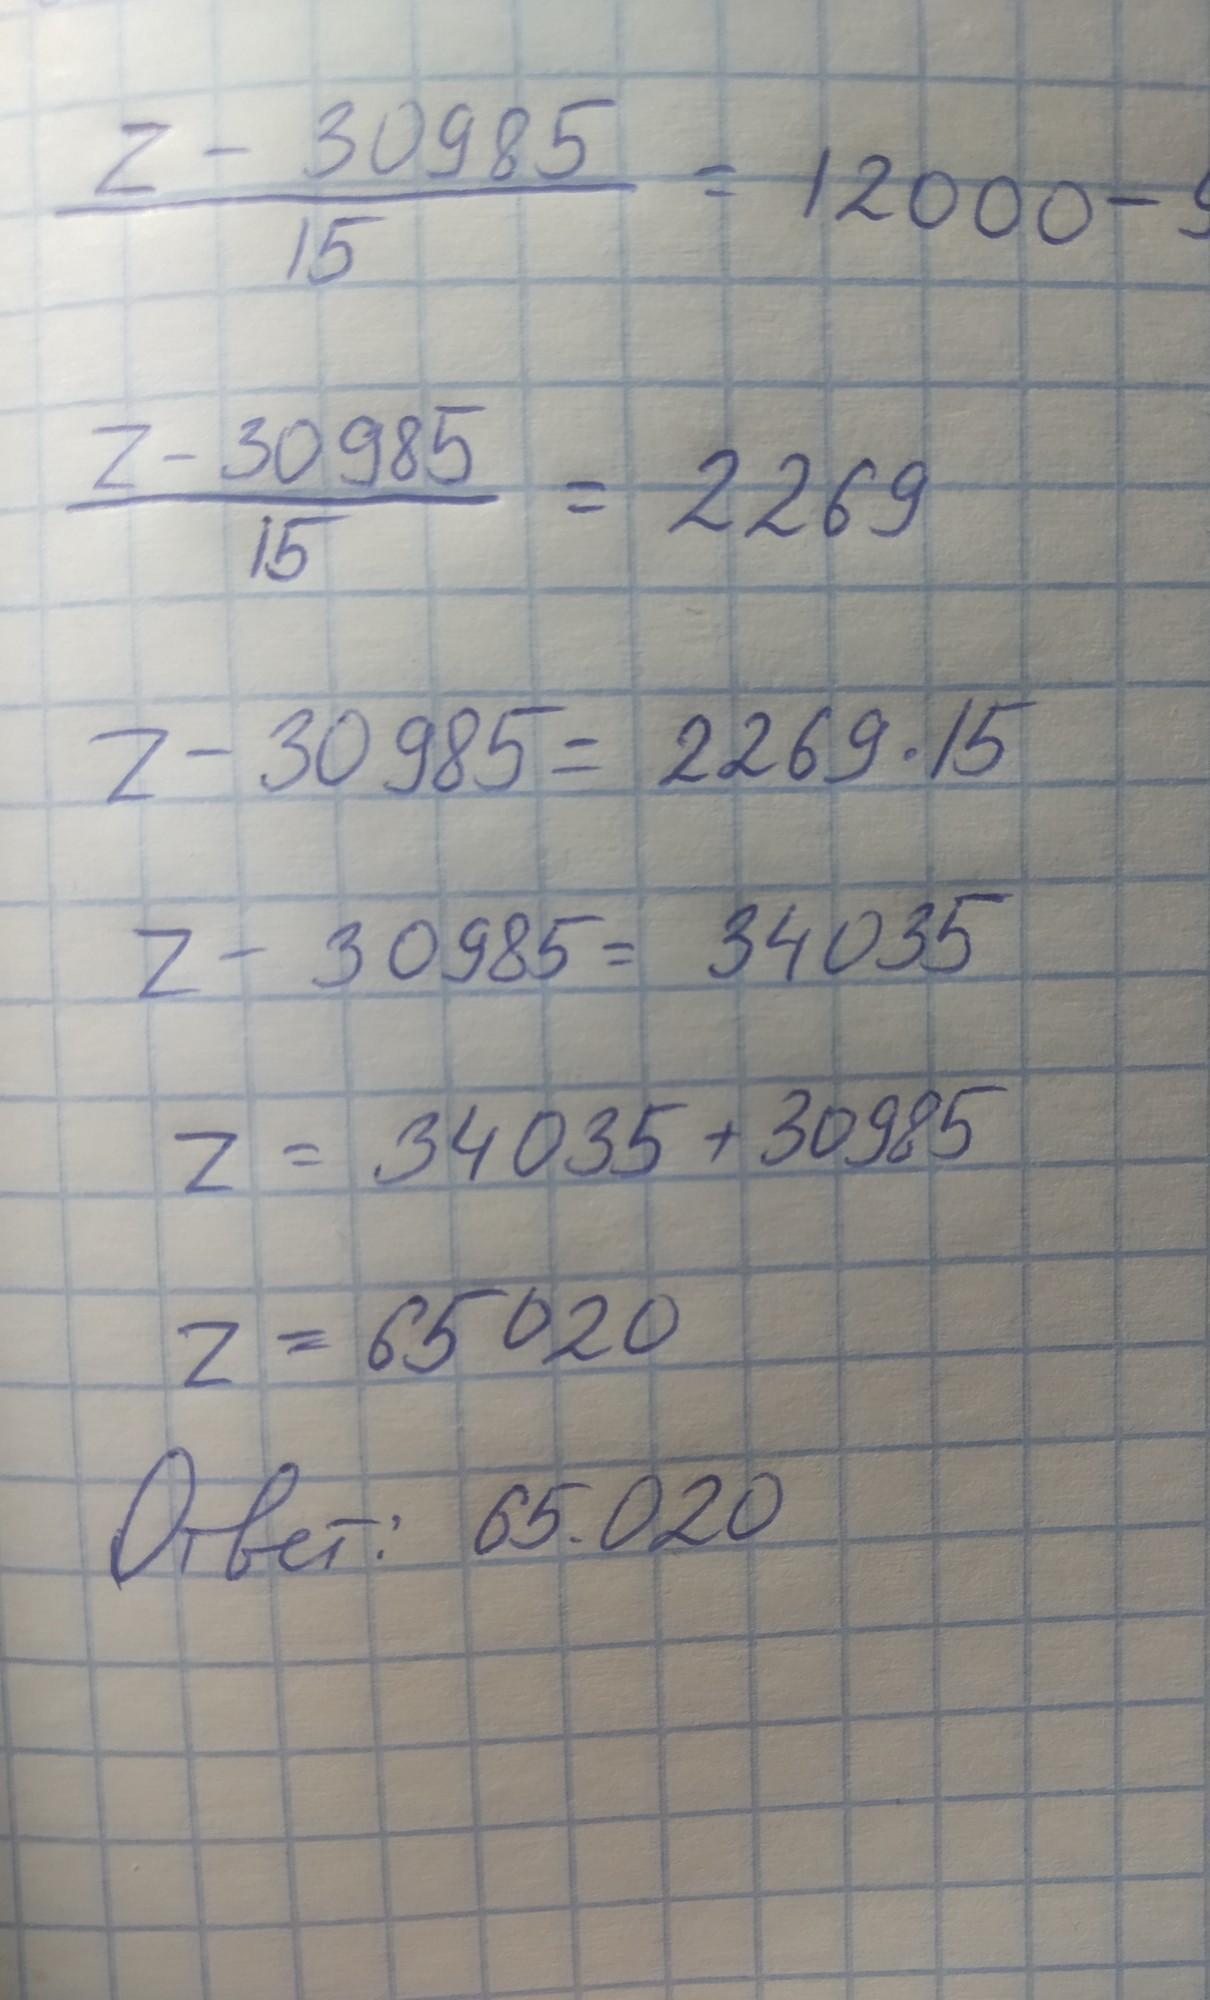 z - 30985 / 15 = 12000 - 9
z - 30985 / 15 = 2269
z - 30985 = 2269 · 15
z - 30985 = 34035
z = 34035 + 30985
z = 65020
Ответ: 65.020